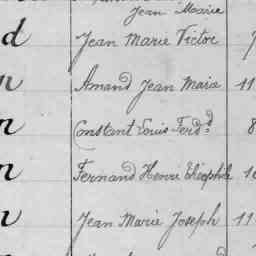 Jean Marie
d Jean Marie Victor
n Amand Jean Maria 11
n Constant Louis Ferd.d 8
n Fernand Henri Théophile 1
n Jean Marie Joseph 11